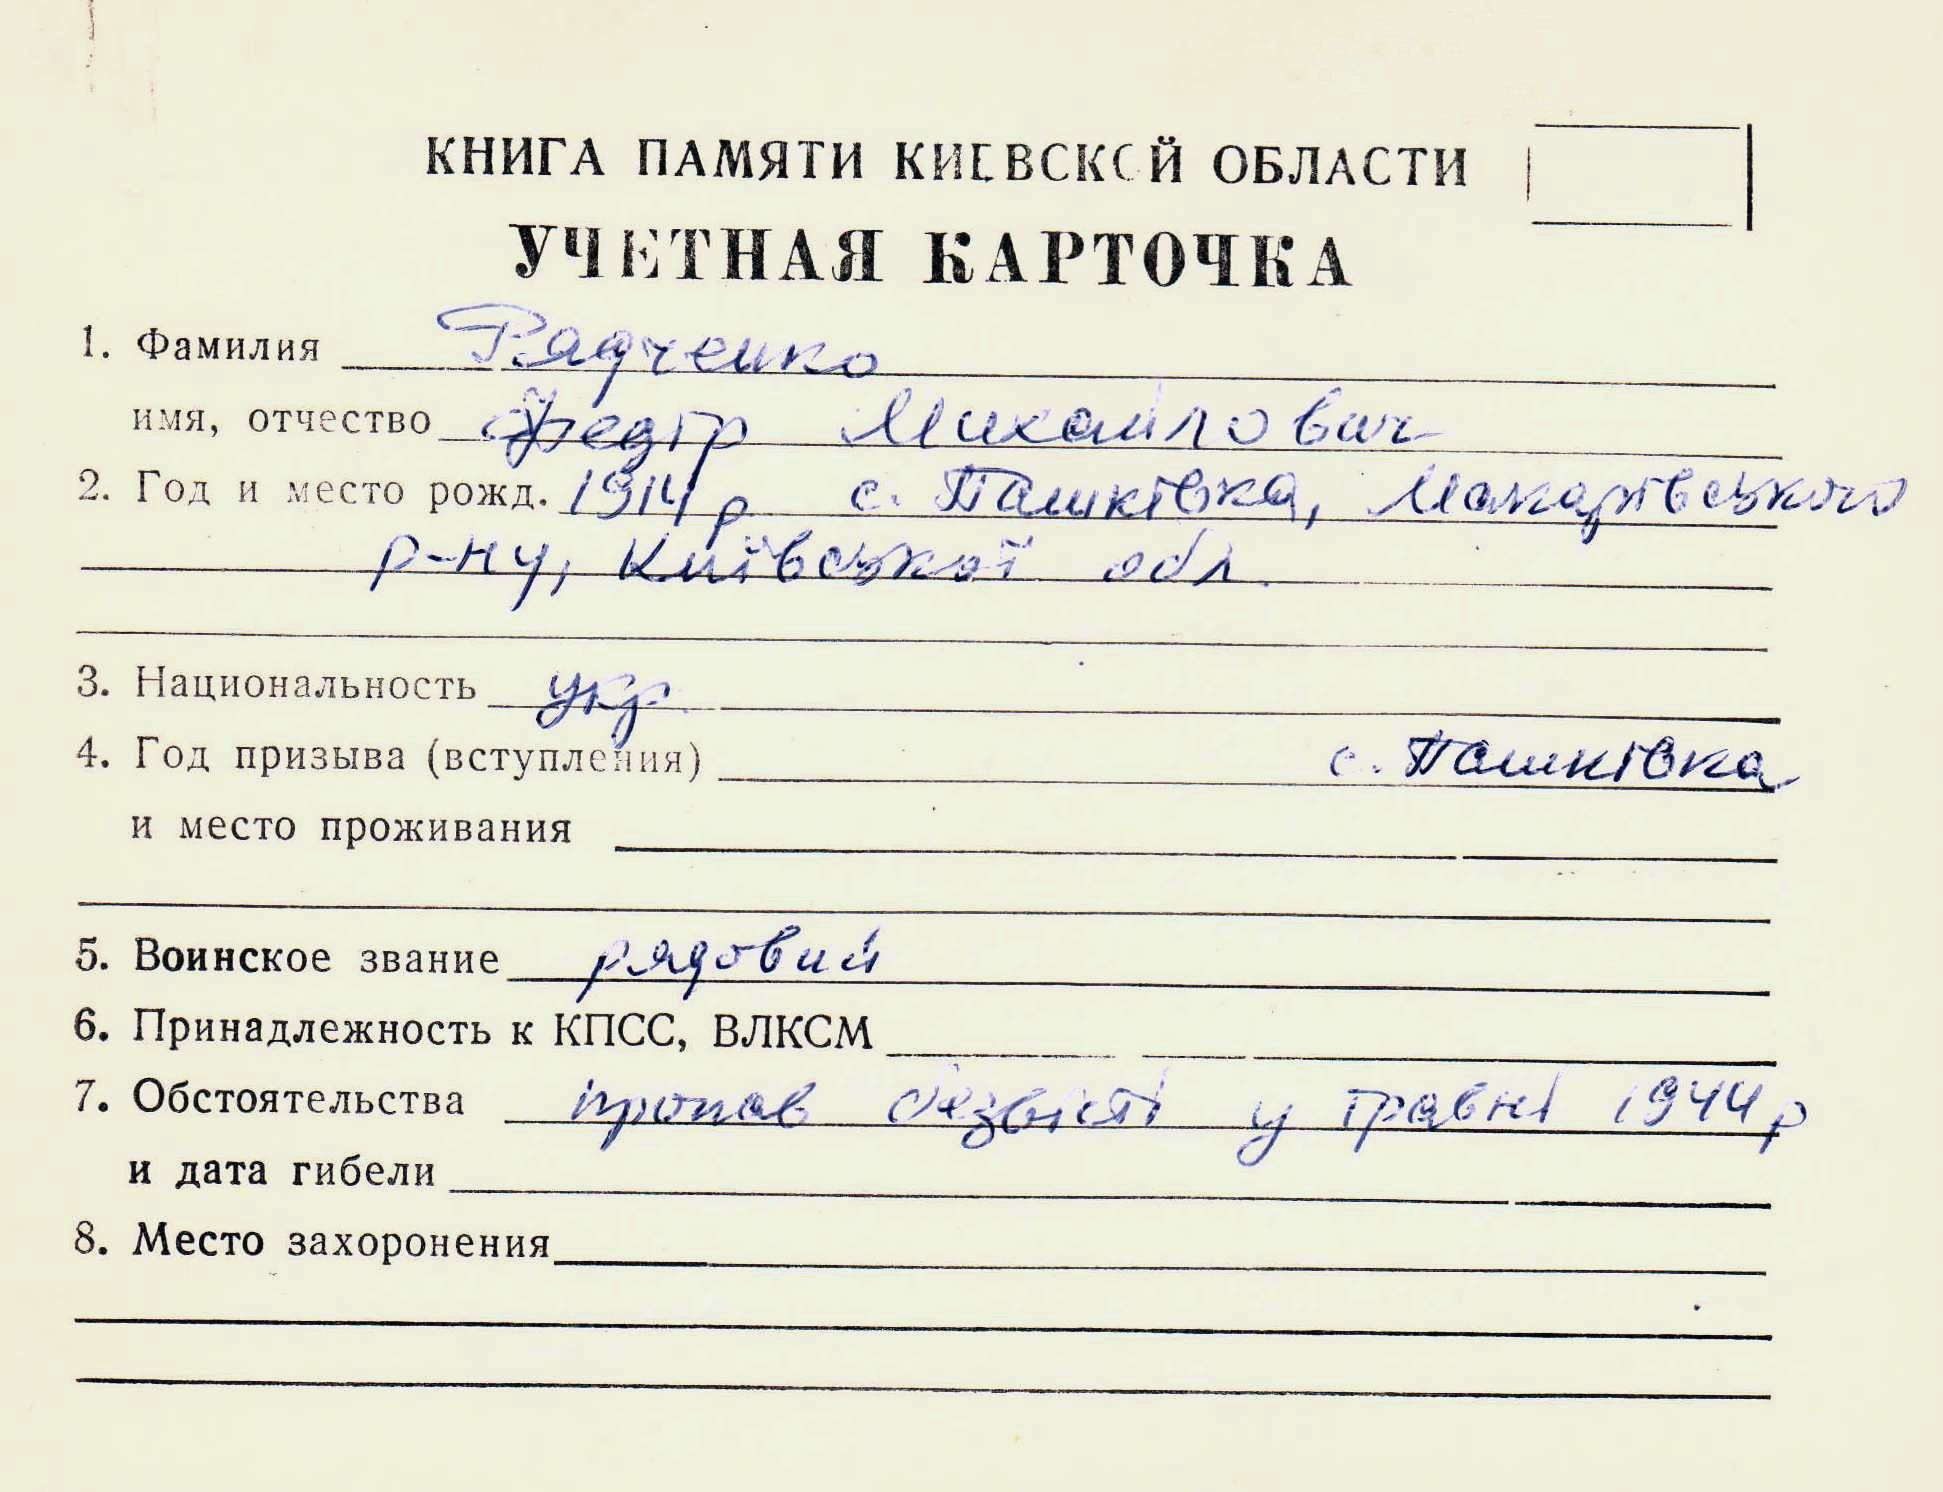 КНИГА ПАМЯТИ КИЕВСКОЙ ОБЛАСТИ
УЧЕТНАЯ КАРТОЧКА
1. Фамилия Рядченко
имя, отчество Федір Михайлович
2. Год и место рожд. 1914 р с. Пашківка, Макарівського
р-ну, Київської обл.
3. Национальность укр.
4. Год призыва (вступления) с. Пашківка
и место проживания
5. Воинское звание рядовий
6. Принадлежность к КПСС, ВЛКСМ
7. Обстоятельства пропав безвісті у травні 1944 р
и дата гибели
8. Место захоронения